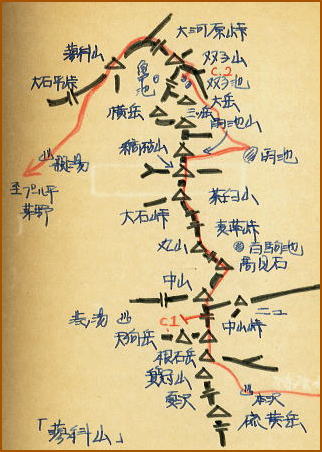 大河原峠
蓼科山
双子山
C.2
双子池
大石平峠
亀甲池
大岳
横岳
三ッ岳
雨池山
縞枯山
雨池
親湯
至プール平
茅野
茶臼山
大石峠
麦草峠
丸山
白駒池
高見石
中山
ニュウ
渋ノ湯
C1
中山峠
天狗岳
根石岳
箕冠山
本沢
夏沢
硫黄岳
「蓼科山」